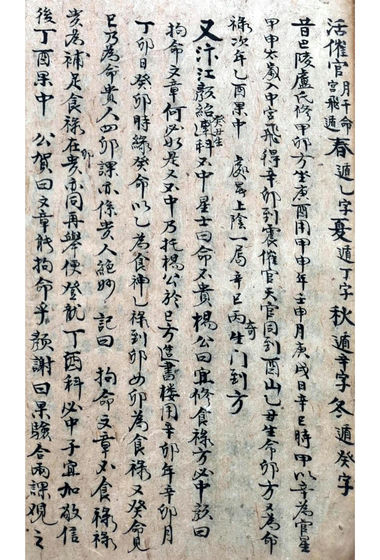 活催官 月干命宮飛遁 春遁乙字夏遁丁字秋遁辛字冬遁癸字
昔巴陵盧氏修甲卯方坐庚酉用甲申年壬申月庚戌日辛巳時甲以辛為官星
甲申太歲入中宮飛得辛卯到震催官天官同到酉山乙丑生命卯方又為命
祿次年乙酉果中 上陰一局辛巳丙奇生門到方
又汴江顏 癸丑生 科不中星士曰命不貴楊公曰宜修食祿方必中顏曰
拘命文章何必是又不中乃托楊公於乙方造書樓用辛卯年辛卯月
丁卯日癸卯時緣癸命以乙為食神乙祿到卯如卯為食祿又癸命見
巳乃為命貴人四卯課亦係貴人絕妙 記曰 拘命文章不食祿祿
貴為補足食祿在貴卯宮同再舉便登航丁酉科必中子宜加敬信
後丁酉果中 公賀曰文章能拘命乎顏謝曰果驗合兩課觀之